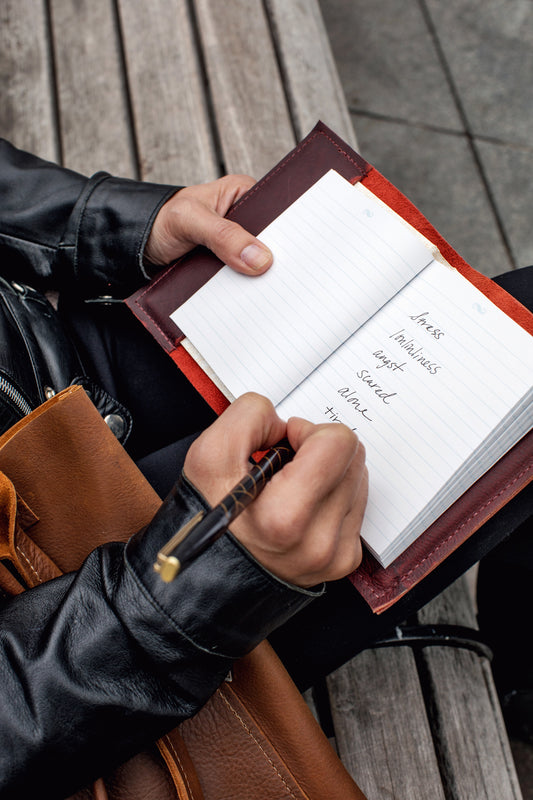 Stress
lonliness
angst
scared
alone